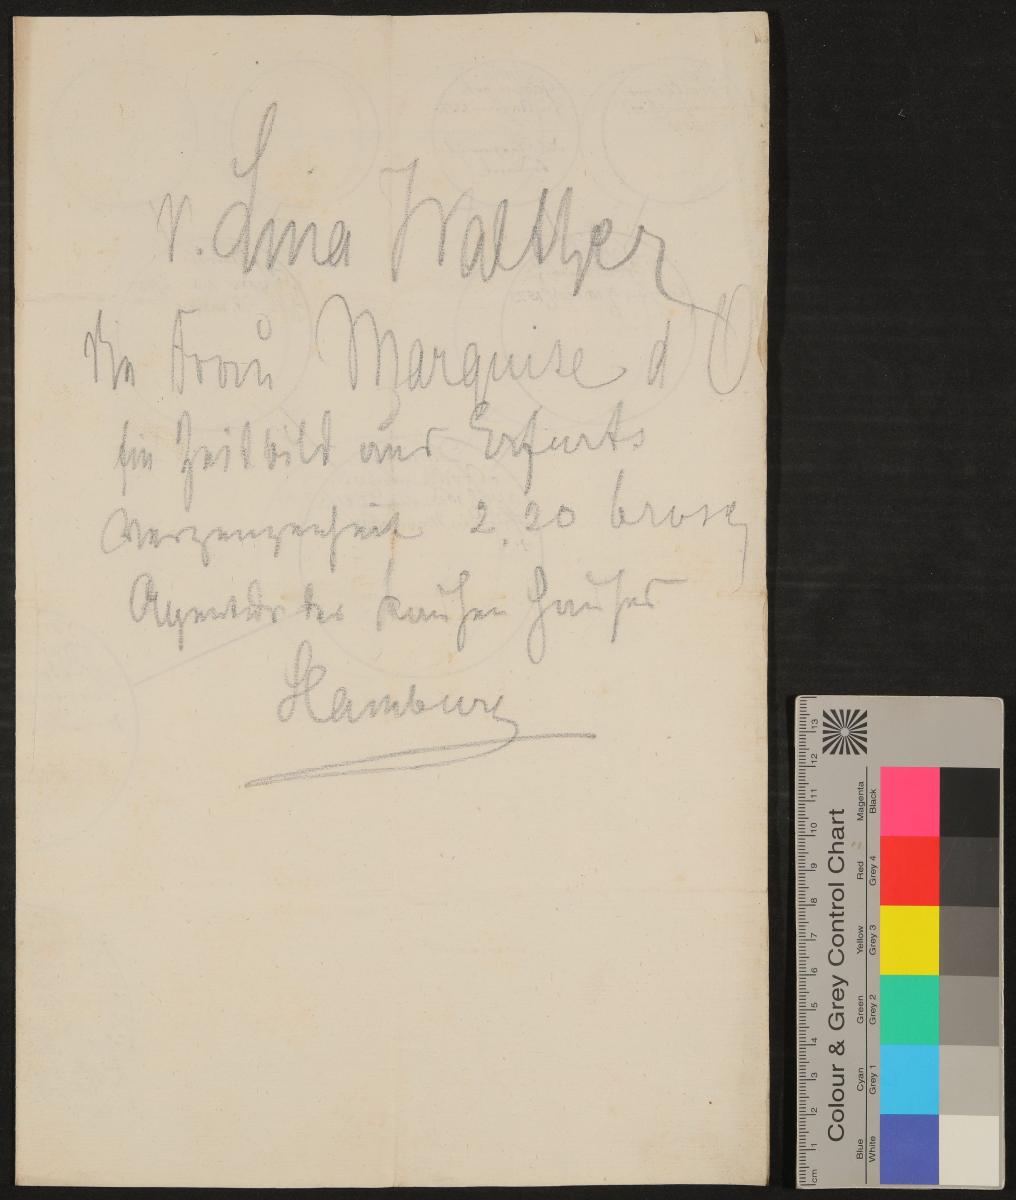 v. Lina Walther
Die Frau Marquise d O
Ein Zeitbild aus Erfurts
Vergangenheit 2.20 brosch
Agentur des Rauhen Hauses
Hamburg
Colour & Grey Control Chart
Blue Cyan Green Yellow Red Magenta
White Grey 1 Grey 2 Grey 3 Grey 4 Black
cm 1 2 3 4 5 6 7 8 9 10 11 12 13